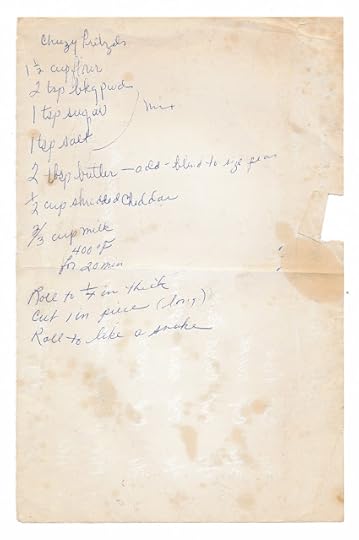 Cheezy Pretzels
1 1/2 cup flour
2 tsp bkg pwd
1 tsp sugar Mix
1 tsp salt
2 tbsp butter — add - blend to size peas
1/2 cup shredded Cheddar
2/3 cup milk
400°F
for 20 min
Roll to 1/4 in thick
Cut 1 in piece (long)
Roll to like a snake